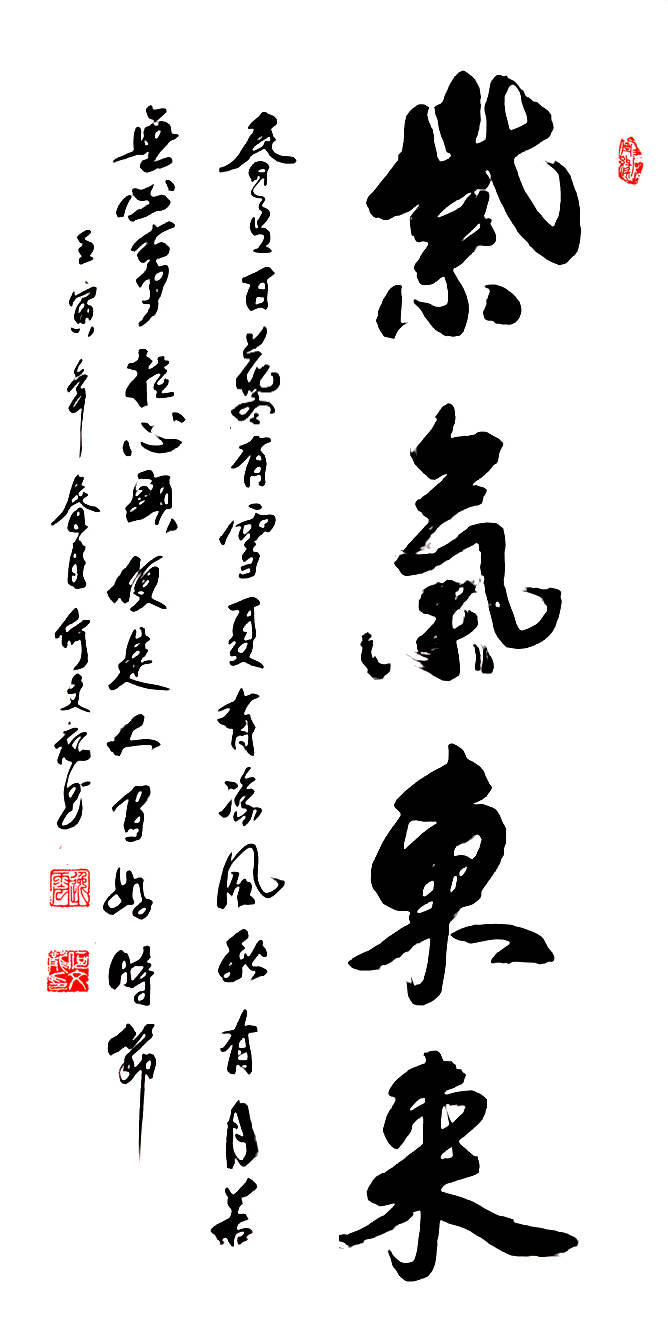 紫氣東來
春有百花冬有雪夏有凉風秋有月若
無心事挂心頭便是人間好時節
壬寅年春月何文書